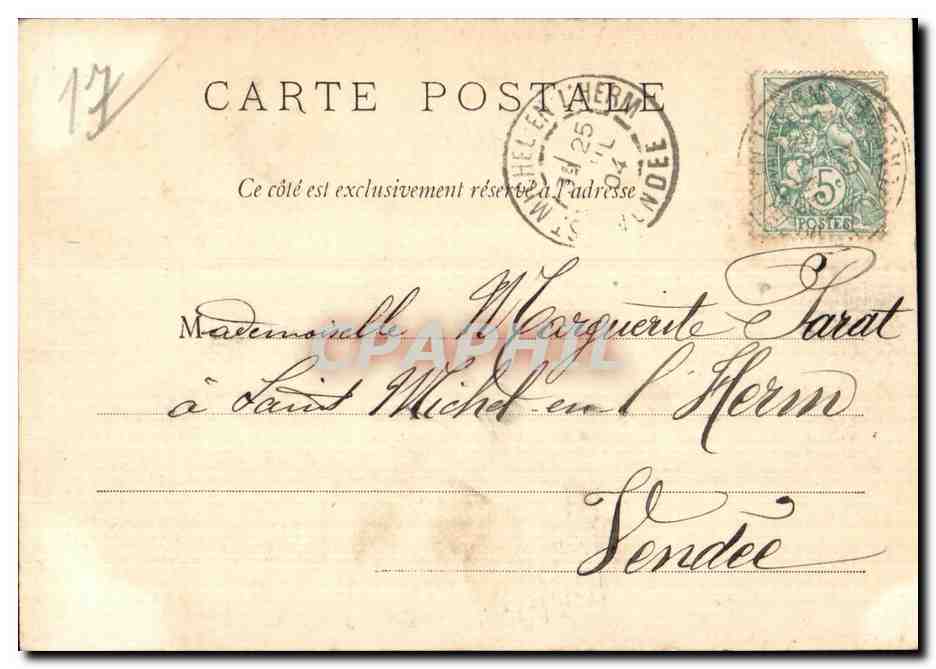 17
CARTE POSTALE
Ce côté est exclusivement réservé à l'adresse
MICHEL-EN-L'HERM
25
04
VENDÉE
5c
POSTES
Mademoiselle Marguerite Parat
à Saint Michel-en-l'Herm
Vendée
CPAPHIL